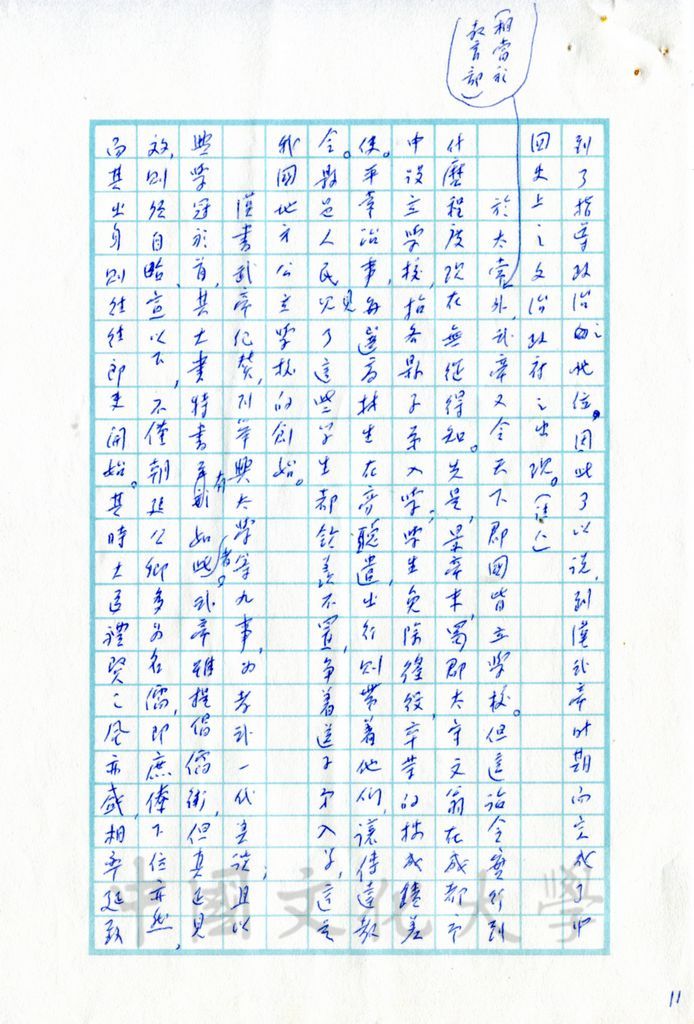 (相當於
教育部)
到了指導政治之地位,因此可以說,到漢武帝時期而完成了中
國史上之文治政府之出現。(註二)
於太常外,武帝又令天下郡國皆立學校。但這詔令實行到
什麼程度現在無從得知。先是,景帝末,蜀郡太守文翁在成都市
中設立學校,招各縣子弟入學;學生免除徭役,卒業的按成績差
使。平常治事,每選高材生在旁聽遣,出行則帶着他們,讓傳達教
令。縣邑人民見了這些學生都欽羨不置,爭着送子弟入學,這是
我國地方公立學校的創始。
漢書武帝紀贊,列舉興太學等九事,為孝武一代美談;且以
興學冠於首,其大書特書有如此者。武帝雖提倡儒術,但真正見
效,則須自昭、宣以下,不僅朝廷公卿多為名儒,即庶僚下位亦然,
而其出身則往往郎吏開始。其時大臣禮賢之風亦盛,相率延致
中國文化大學
11